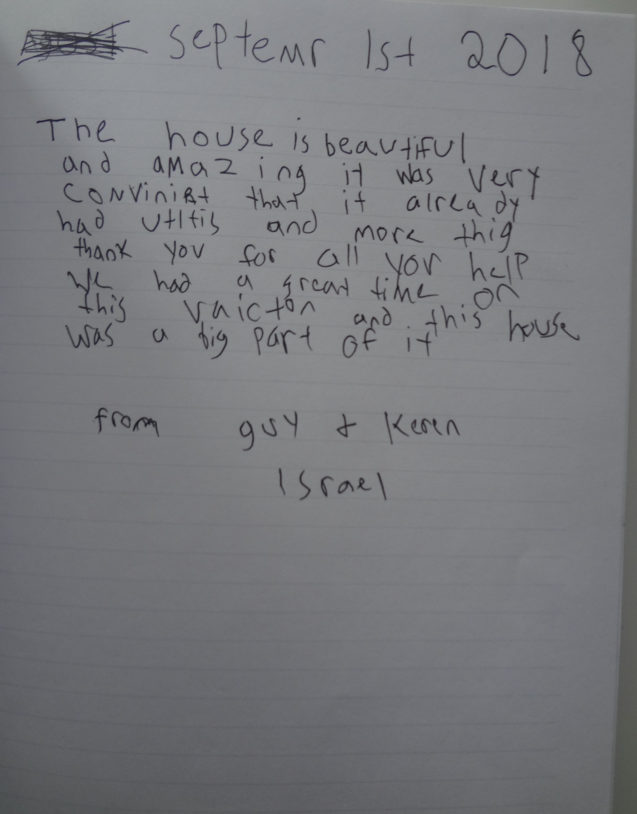 Septemr 1st 2018
The house is beautiful
and amazing it was very
convinist that it already
had utltis and more thig
thank you for all your help
We had a great time on
this vaicton and this house
was a big part of it
from guy + Keren
Israel